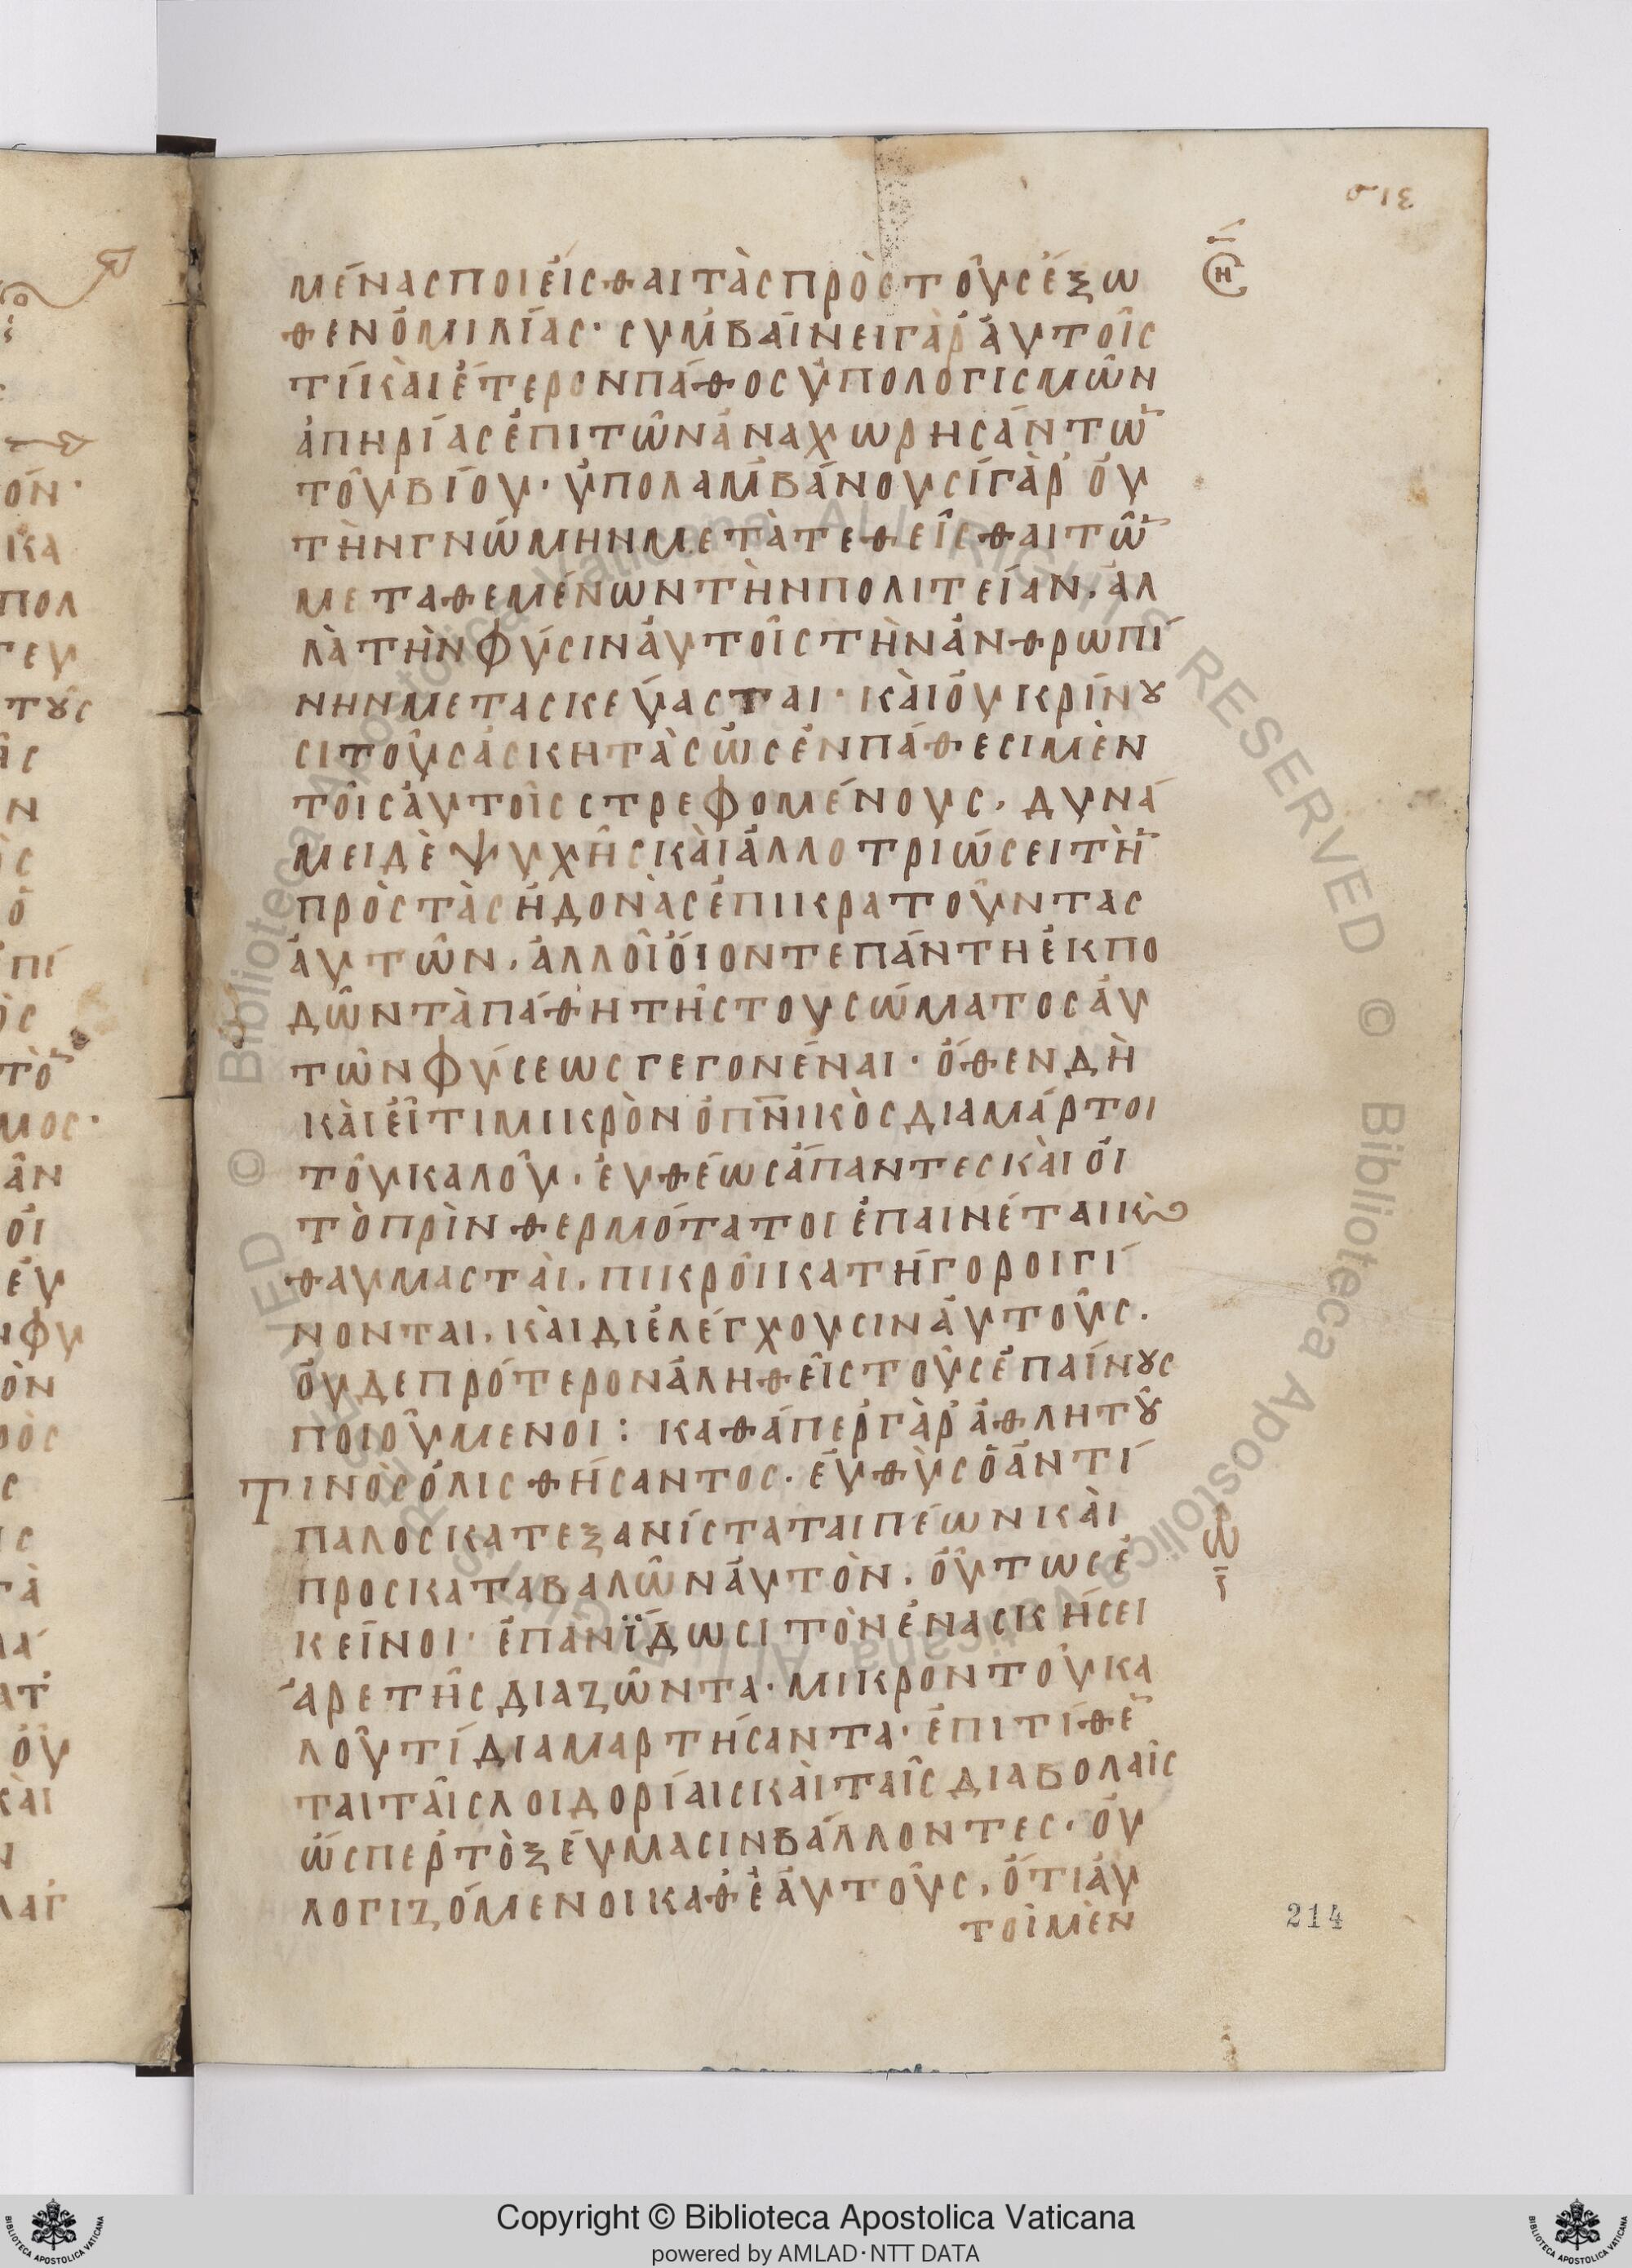 σιε
ΜΈΝΑΣΠΟΙΕῖΣΘΑΙΤᾺΣΠΡῸΣΤΟῪΣἜΞΩ
ΘΕΝὉΜΙΛΊΑΣ· ΣΥΜΒΑΊΝΕΙΓᾺΡἈΥΤΟῖΣ
ΤΊΚΑῚἝΤΕΡΟΝΠΆΘΟΣὙΠΟΛΟΓΙΣΜῶΝ
ἈΠΗΡΊΑΣἘΠΙΤῶΝἈΝΑΧΩΡΗΣΆΝΤΩ̄
ΤΟῦΒΊΟΥ· ὙΠΟΛΑΜΒΆΝΟΥΣΊΓᾺΡ ὈΥ
ΤῊΝΓΝΏΜΗΝΜΕΤᾺΤΕΘΕῖΣΘΑΙΤῶ̄
ΜΕΤΑΘΕΜΈΝΩΝΤῊΝΠΟΛΙΤΕΊΑΝ, ἈΛ
ΛᾺΤῊΝΦΎΣΙΝἈΥΤΟῖΣΤῊΝἈΝΘΡΩΠΊ
ΝΗΝΜΕΤΑΣΚΕΥΆΣΤΑΙ· ΚΑῚὈΥΚΡΊΝȣ
ΣΙΤΟῪΣἈΣΚΗΤᾺΣὩΣἘΝΠΆΘΕΣΙΜῈΝ
ΤΟῖΣἈΥΤΟῖΣΣΤΡΕΦΟΜΈΝΟΥΣ, ΔΥΝΆ
ΜΕΙΔῈΨΥΧῆΣΚΑῚἈΛΛΟΤΡΙΏΣΕΙΤῆ̄
ΠΡῸΣΤᾺΣἩΔΟΝᾺΣἘΠΙΚΡΑΤΟῦΝΤΑΣ
ἈΥΤῶΝ, ἈΛΛΟῖὍΙΟΝΤΕΠΆΝΤΗἘΚΠΟ
ΔῶΝΤᾺΠΆΘΗΤῆΣΤΟΥΣΏΜΑΤΟΣἈΥ
ΤῶΝΦΎΣΕΩΣΓΕΓΟΝΈΝΑΙ· ὍΘΕΝΔῊ
ΚΑῚΕἼΤΙΜΙΚΡῸΝὉΠΝ̄ΙΚῸΣΔΙΑΜΆΡΤΟΙ
ΤΟῦΚΑΛΟῦ, ἘΥΘΈΩΣἍΠΑΝΤΕΣΚΑῚὉΙ
ΤῸΠΡῚΝΘΕΡΜΌΤΑΤΟΙἘΠΑΙΝΈΤΑΙΚϚ
ΘΑΥΜΑΣΤΑῚ, ΠΙΚΡΟῚΚΑΤΉΓΟΡΟΙΓΊ
ΝΟΝΤΑΙ, ΚΑῚΔΙἘΛΈΓΧΟΥΣΙΝἈΥΤΟῪΣ·
ὈΥΔΕΠΡΌΤΕΡΟΝἈΛΗΘΕῖΣΤΟῪΣἘΠΑΊΝȣΣ
ΠΟΙΟΎΜΕΝΟΙ: ΚΑΘΆΠΕΡΓᾺΡἈΘΛΗΤȣ͂
ΤΙΝῸΣὈΛΙΣΘΉΣΑΝΤΟΣ· ἘΥΘῪΣὉἈΝΤΊ
ΠΑΛΟΣΚΑΤΕΞΑΝΊΣΤΑΤΑΙΠΈΩΝΚΑῚ
ΠΡΟΣΚΑΤΑΒΑΛῶΝἈΥΤῸΝ, ὉΎΤΩΣἘ
ΚΕΊΝΟΙ· ἘΠᾺΝΪΔΩΣΙΤῸΝἘΝΑΣΚΉΣΕΙ
ἈΡΕΤῆΣΔΙΑΖῶΝΤΑ· ΜΙΚΡΟΝΤΟῦΚΑ
ΛΟῦΤΊΔΙΑΜΑΡΤΉΣΑΝΤΑ· ἘΠΙΤΊΘΕ̄
ΤΑΙΤΑῖΣΛΟΙΔΟΡΊΑΙΣΚΑῚΤΑῖΣΔΙΑΒΟΛΑῖΣ
ὭΣΠΕΡΤῸΞΕΎΜΑΣΙΝΒΆΛΛΟΝΤΕΣ· ὈΥ
ΛΟΓΙΖΌΜΕΝΟΙΚΑΘἙΑΥΤΟῪΣ, ὍΤΙἈΥ
ΤΟῚΜῈΝ
214
Copyright © Biblioteca Apostolica Vaticana
powered by AMLAD·NTT DATA